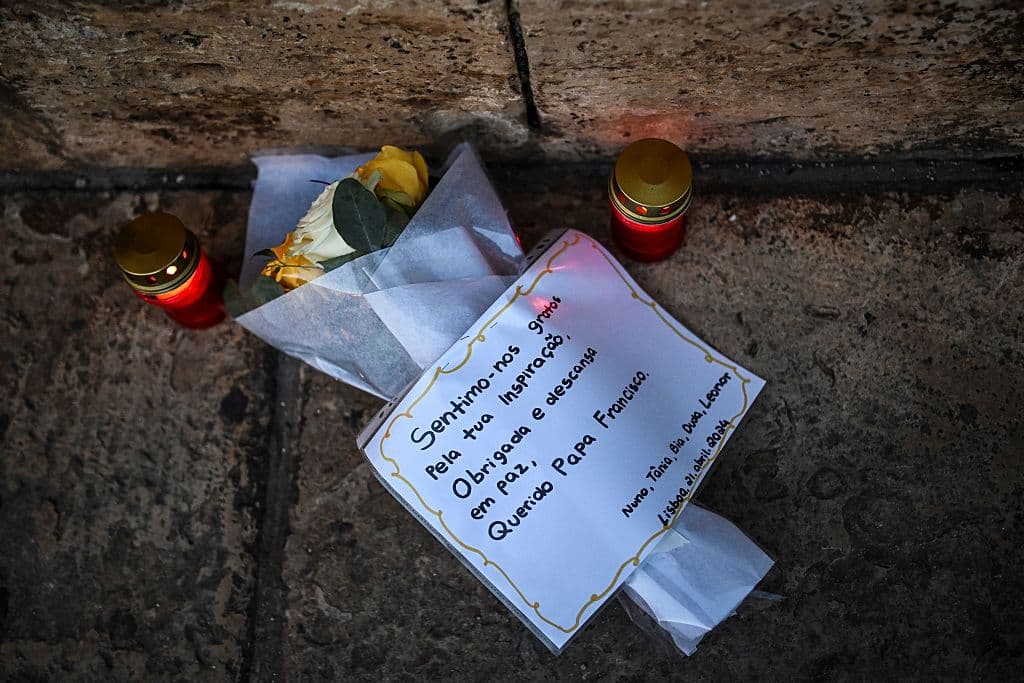 Sentimo-nos gratos
pela tua Inspiração,
Obrigada e descansa
em paz,
Querido Papa Francisco.
Nuno, Tânia, Bia, Duda, Leonor
Lisboa, 21, abril-2024